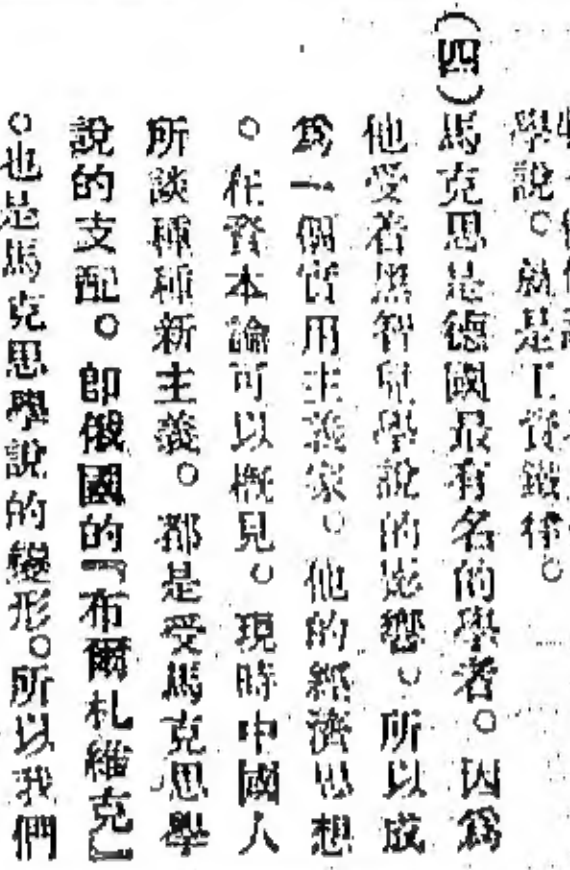 學說。就是工資鐵律。
(四)馬克思是德國最有名的學者。因爲
他受着黑智兒學說的影響。所以成
爲一個實用主義家。他的經濟思想
。在資本論可以槪見。現時中國人
所談種種新主義。都是受馬克思學
說的支配。卽俄國的『布爾札維克』
。也是馬克思學說的變形。所以我們